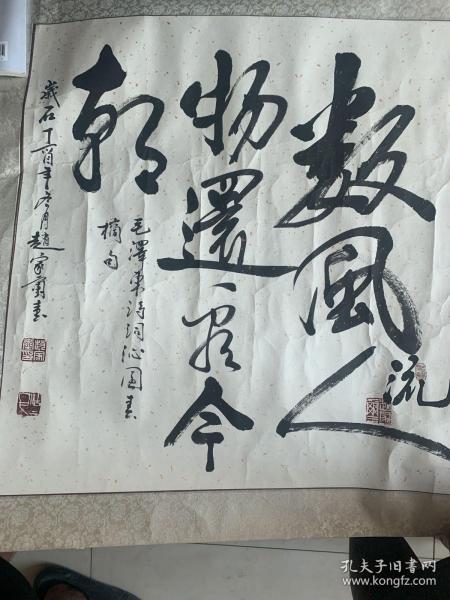 数風流人
物還看今
朝
毛澤東詩詞沁園春
摘句
歲在丁酉年冬月趙家
孔夫子旧书网
www.kongfz.com